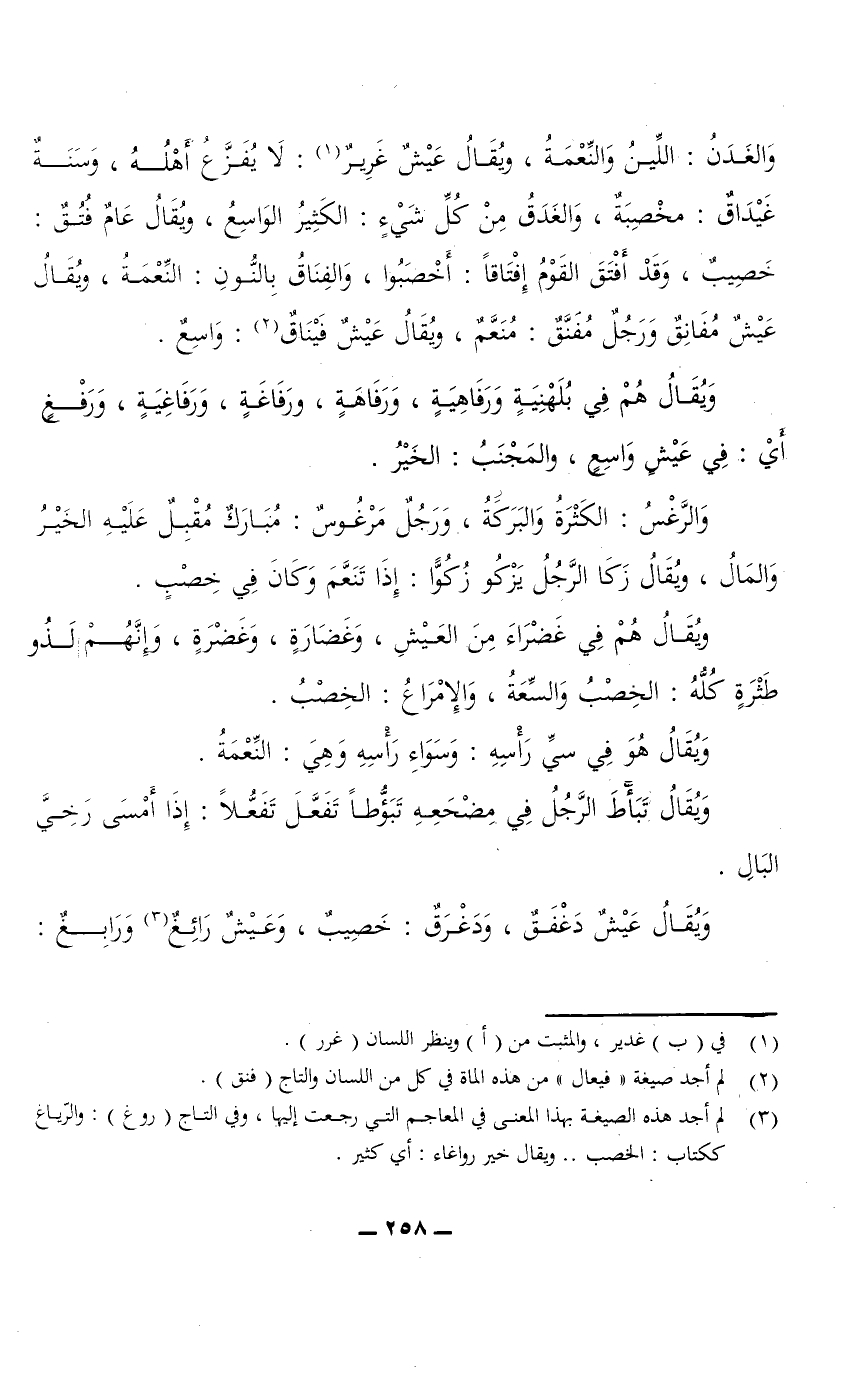 وَالغَدَنُ : اللِّينُ وَالنِّعْمَةُ ، ويُقَالُ عَيْشٌ غَرِيرٌ(١) : لَا يُفَزَّعُ أَهْلُهُ ، وَسَنَةٌ
غَيْدَاقٌ : مخْصِبَةٌ ، وَالغَدَقُ مِنْ كُلِّ شَيْءٍ : الكَثِيرُ الوَاسِعُ ، ويُقَالُ عَامٌ فُتُقٌ :
خَصِيبٌ ، وَقَدْ أَفْتَقَ القَوْمُ إِفْتَاقاً : أَخْصَبُوا ، وَالفِنَاقُ بِالنُّونِ : النِّعْمَةُ ، ويُقَالُ
عَيْشٌ مُفَانِقٌ وَرَجُلٌ مُفَنَّقٌ : مُنَعَّمٌ ، ويُقَالُ عَيْشٌ فَيْنَاقٌ(٢) : وَاسِعٌ .
وَيُقَالُ هُمْ فِي بُلَهْنِيَةٍ وَرَفَاهِيَةٍ ، وَرَفَاهَةٍ ، ورَفَاغَةٍ ، وَرَفَاغِيَةٍ ، وَرَفْغٍ
أَيْ : فِي عَيْشٍ وَاسِعٍ ، والمَجْنَبُ : الخَيْرُ .
وَالرَّغْسُ : الكَثْرَةُ وَالبَرَكَةُ ، وَرَجُلٌ مَرْغُوسٌ : مُبَارَكٌ مُقْبِلٌ عَلَيْهِ الخَيْرُ
وَالمَالُ ، ويُقَالُ زَكَا الرَّجُلُ يَزْكُو زُكُوًّا : إِذَا تَنَعَّمَ وَكَانَ فِي خِصْبٍ .
ويُقَالُ هُمْ فِي غَضْرَاءَ مِنَ العَيْشِ ، وَغَضَارَةٍ ، وَغَضْرَةٍ ، وَإِنَّهُمْ لَذُو
طَثْرَةٍ كُلُّهُ : الخِصْبُ وَالسِّعَةُ ، وَالإِمْرَاعُ : الخِصْبُ .
وَيُقَالُ هُوَ فِي سيِّ رَأْسِهِ : وَسَوَاءِ رَأْسِهِ وَهِيَ : النِّعْمَةُ .
وَيُقَالُ تَبَأَّطَ الرَّجُلُ فِي مِضْجَعِهِ تَبَؤُّطاً تَفَعَّلَ تَفَعُّلاً : إِذَا أَمْسَى رَخِيَّ
البَالِ .
وَيُقَالُ عَيْشٌ دَغْفَقٌ ، وَدَغْرَقٌ : خَصِيبٌ ، وَعَيْشٌ رَائِغٌ(٣) وَرَابِغٌ :
(١) في ( ب ) غدير ، والمثبت من ( أ ) وينظر اللسان ( غرر ) .
(٢) لم أجد صيغة « فيعال » من هذه الماة في كل من اللسان والتاج ( فنق ) .
(٣) لم أجد هذه الصيغة بهذا المعنى في المعاجم التي رجعت إليها ، وفي التاج ( روغ ) : والرّياغ
ككتاب : الخصب .. ويقال خير رواغاء : أي كثير .
ــ ٢٥٨ ــ